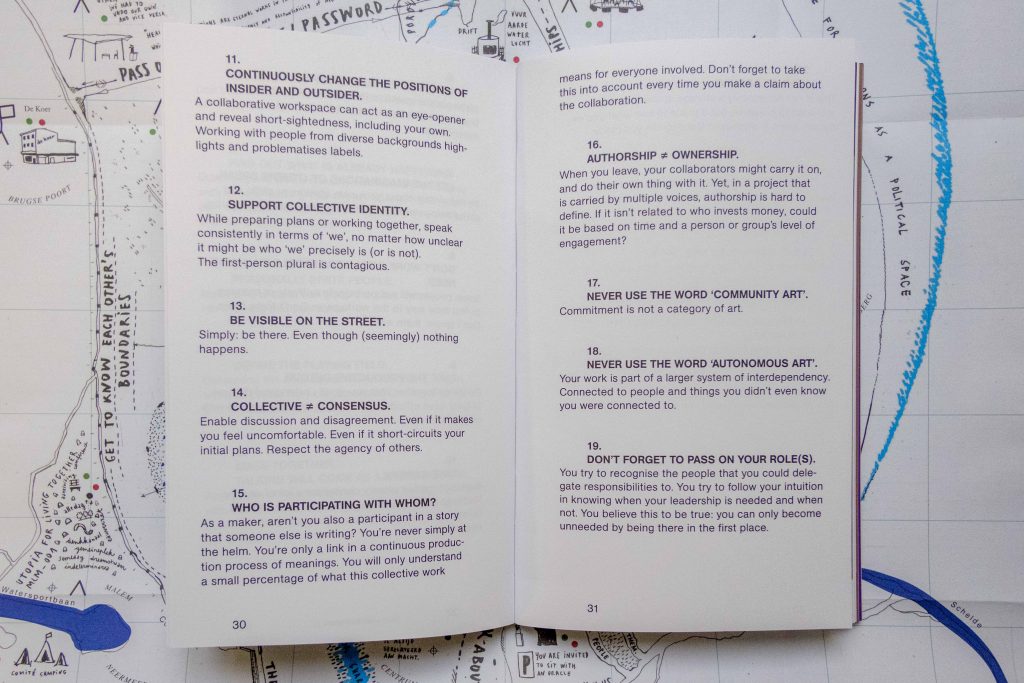 11.
CONTINUOUSLY CHANGE THE POSITIONS OF
INSIDER AND OUTSIDER.
A collaborative workspace can act as an eye-opener
and reveal short-sightedness, including your own.
Working with people from diverse backgrounds high-
lights and problematises labels.
12.
SUPPORT COLLECTIVE IDENTITY.
While preparing plans or working together, speak
consistently in terms of ‘we’, no matter how unclear
it might be who ‘we’ precisely is (or is not).
The first-person plural is contagious.
13.
BE VISIBLE ON THE STREET.
Simply: be there. Even though (seemingly) nothing
happens.
14.
COLLECTIVE ≠ CONSENSUS.
Enable discussion and disagreement. Even if it makes
you feel uncomfortable. Even if it short-circuits your
initial plans. Respect the agency of others.
15.
WHO IS PARTICIPATING WITH WHOM?
As a maker, aren’t you also a participant in a story
that someone else is writing? You’re never simply at
the helm. You’re only a link in a continuous produc-
tion process of meanings. You will only understand
a small percentage of what this collective work
30
means for everyone involved. Don’t forget to take
this into account every time you make a claim about
the collaboration.
16.
AUTHORSHIP ≠ OWNERSHIP.
When you leave, your collaborators might carry it on,
and do their own thing with it. Yet, in a project that
is carried by multiple voices, authorship is hard to
define. If it isn’t related to who invests money, could
it be based on time and a person or group’s level of
engagement?
17.
NEVER USE THE WORD ‘COMMUNITY ART’.
Commitment is not a category of art.
18.
NEVER USE THE WORD ‘AUTONOMOUS ART’.
Your work is part of a larger system of interdependency.
Connected to people and things you didn’t even know
you were connected to.
19.
DON’T FORGET TO PASS ON YOUR ROLE(S).
You try to recognise the people that you could dele-
gate responsibilities to. You try to follow your intuition
in knowing when your leadership is needed and when
not. You believe this to be true: you can only become
unneeded by being there in the first place.
31
PASSWORD
DRIFT
VUUR
AARDE
WATER
LUCHT
De Koer
BRUGSE POORT
GET TO KNOW EACH OTHER'S
BOUNDARIES
UTOPIA FOR LIVING TOGETHER
Watersportbaan
MALEM
COMITÉ CAMPING
AS A POLITICAL SPACE
Schelde
YOU ARE INVITED
TO SIT WITH
AN ORACLE